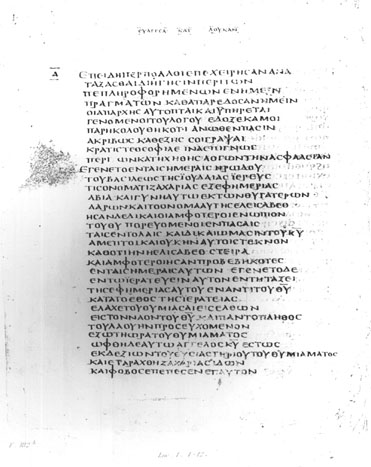 ΕΥΑΓΓΕ ΚΑΤ ΛΟΥΚΑΝ
Α ΕΠΕΙΔΗΠΕΡΠΟΛΛΟΙΕΠΕΧΕΙΡΗΣΑΝΑΝΑ
ΤΑΞΑΣΘΑΙΔΙΗΓΗΣΙΝΠΕΡΙΤΩΝ
ΠΕΠΛΗΡΟΦΟΡΗΜΕΝΩΝΕΝΗΜΕΙΝ
ΠΡΑΓΜΑΤΩΝ ΚΑΘΑΠΑΡΕΔΟΣΑΝΗΜΕΙΝ
ΟΙΑΠΑΡΧΗΣΑΥΤΟΠΤΑΙΚΑΙΥΠΗΡΕΤΑΙ
ΓΕΝΟΜΕΝΟΙΤΟΥΛΟΓΟΥ ΕΔΟΞΕΚΑΜΟΙ
ΠΑΡΗΚΟΛΟΥΘΗΚΟΤΙ ΑΝΩΘΕΝΠΑΣΙΝ
ΑΚΡΙΒΩΣ ΚΑΘΕΞΗΣ ΣΟΙΓΡΑΨΑΙ
ΚΡΑΤΙΣΤΕΘΕΟΦΙΛΕ ΙΝΑΕΠΙΓΝΩΣ
ΠΕΡΙ ΩΝΚΑΤΗΧΗΘΗΣ ΛΟΓΩΝΤΗΝΑΣΦΑΛΕΙΑΝ
ΕΓΕΝΕΤΟΕΝΤΑΙΣΗΜΕΡΑΙΣ ΗΡΩΔΟΥ
ΤΟΥΒΑΣΙΛΕΩΣΤΗΣΙΟΥΔΑΙΑΣ ΙΕΡΕΥΣ
ΤΙΣΟΝΟΜΑΤΙΖΑΧΑΡΙΑΣ ΕΞΕΦΗΜΕΡΙΑΣ
ΑΒΙΑ ΚΑΙΓΥΝΗΑΥΤΩΕΚΤΩΝΘΥΓΑΤΕΡΩΝ
ΑΑΡΩΝΚΑΙΤΟΟΝΟΜΑΑΥΤΗΣΕΛΕΙΣΑΒΕΘ
ΗΣΑΝΔΕΔΙΚΑΙΟΙΑΜΦΟΤΕΡΟΙΕΝΩΠΙΟΝ
ΤΟΥΘΥ ΠΟΡΕΥΟΜΕΝΟΙΕΝΠΑΣΑΙΣ
ΤΑΙΣΕΝΤΟΛΑΙΣ ΚΑΙΔΙΚΑΙΩΜΑΣΙΝΤΟΥΚΥ
ΑΜΕΠΤΟΙ ΚΑΙΟΥΚΗΝΑΥΤΟΙΣΤΕΚΝΟΝ
ΚΑΘΟΤΙΗΝΕΛΙΣΑΒΕΘΣΤΕΙΡΑ
ΚΑΙΑΜΦΟΤΕΡΟΙΗΣΑΝΠΡΟΒΕΒΗΚΟΤΕΣ
ΕΝΤΑΙΣΗΜΕΡΑΙΣΑΥΤΩΝ ΕΓΕΝΕΤΟΔΕ
ΕΝΤΩΙΕΡΑΤΕΥΕΙΝΑΥΤΟΝΕΝΤΗΤΑΞΕΙ
ΤΗΣΕΦΗΜΕΡΙΑΣΑΥΤΟΥΕΝΑΝΤΙΤΟΥΘΥ
ΚΑΤΑΤΟΕΘΟΣ ΤΗΣΙΕΡΑΤΕΙΑΣ
ΕΛΑΧΕΤΟΥΘΥΜΙΑΣΑΙΕΙΣΕΛΘΩΝ
ΕΙΣΤΟΝΝΑΟΝΤΟΥΘΥ ΚΑΙΠΑΝΤΟΠΛΗΘΟΣ
ΤΟΥΛΑΟΥΗΝΠΡΟΣΕΥΧΟΜΕΝΟΝ
ΕΞΩΤΗΩΡΑΤΟΥΘΥΜΙΑΜΑΤΟΣ
ΩΦΘΗΔΕΑΥΤΩΑΓΓΕΛΟΣΚΥ ΕΣΤΩΣ
ΕΚΔΕΞΙΩΝΤΟΥΘΥΣΙΑΣΤΗΡΙΟΥΤΟΥΘΥΜΙΑΜΑΤΟΣ
ΚΑΙΕΤΑΡΑΧΘΗΖΑΧΑΡΙΑΣΙΔΩΝ
ΚΑΙΦΟΒΟΣΕΠΕΠΕΣΕΝΕΠΑΥΤΟΝ
F. 182b
Luc. 1. 1-12.